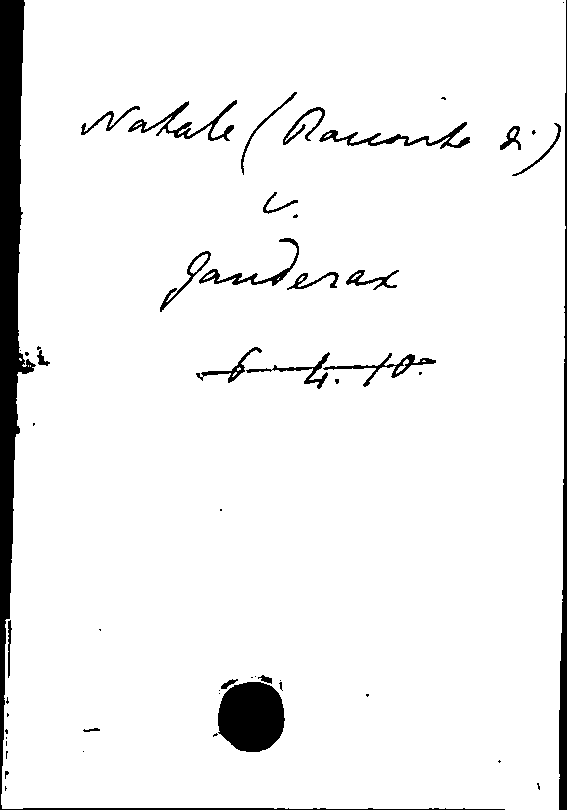 Natale (Racconto di)
v.
Ganderax
6. 4. 10.